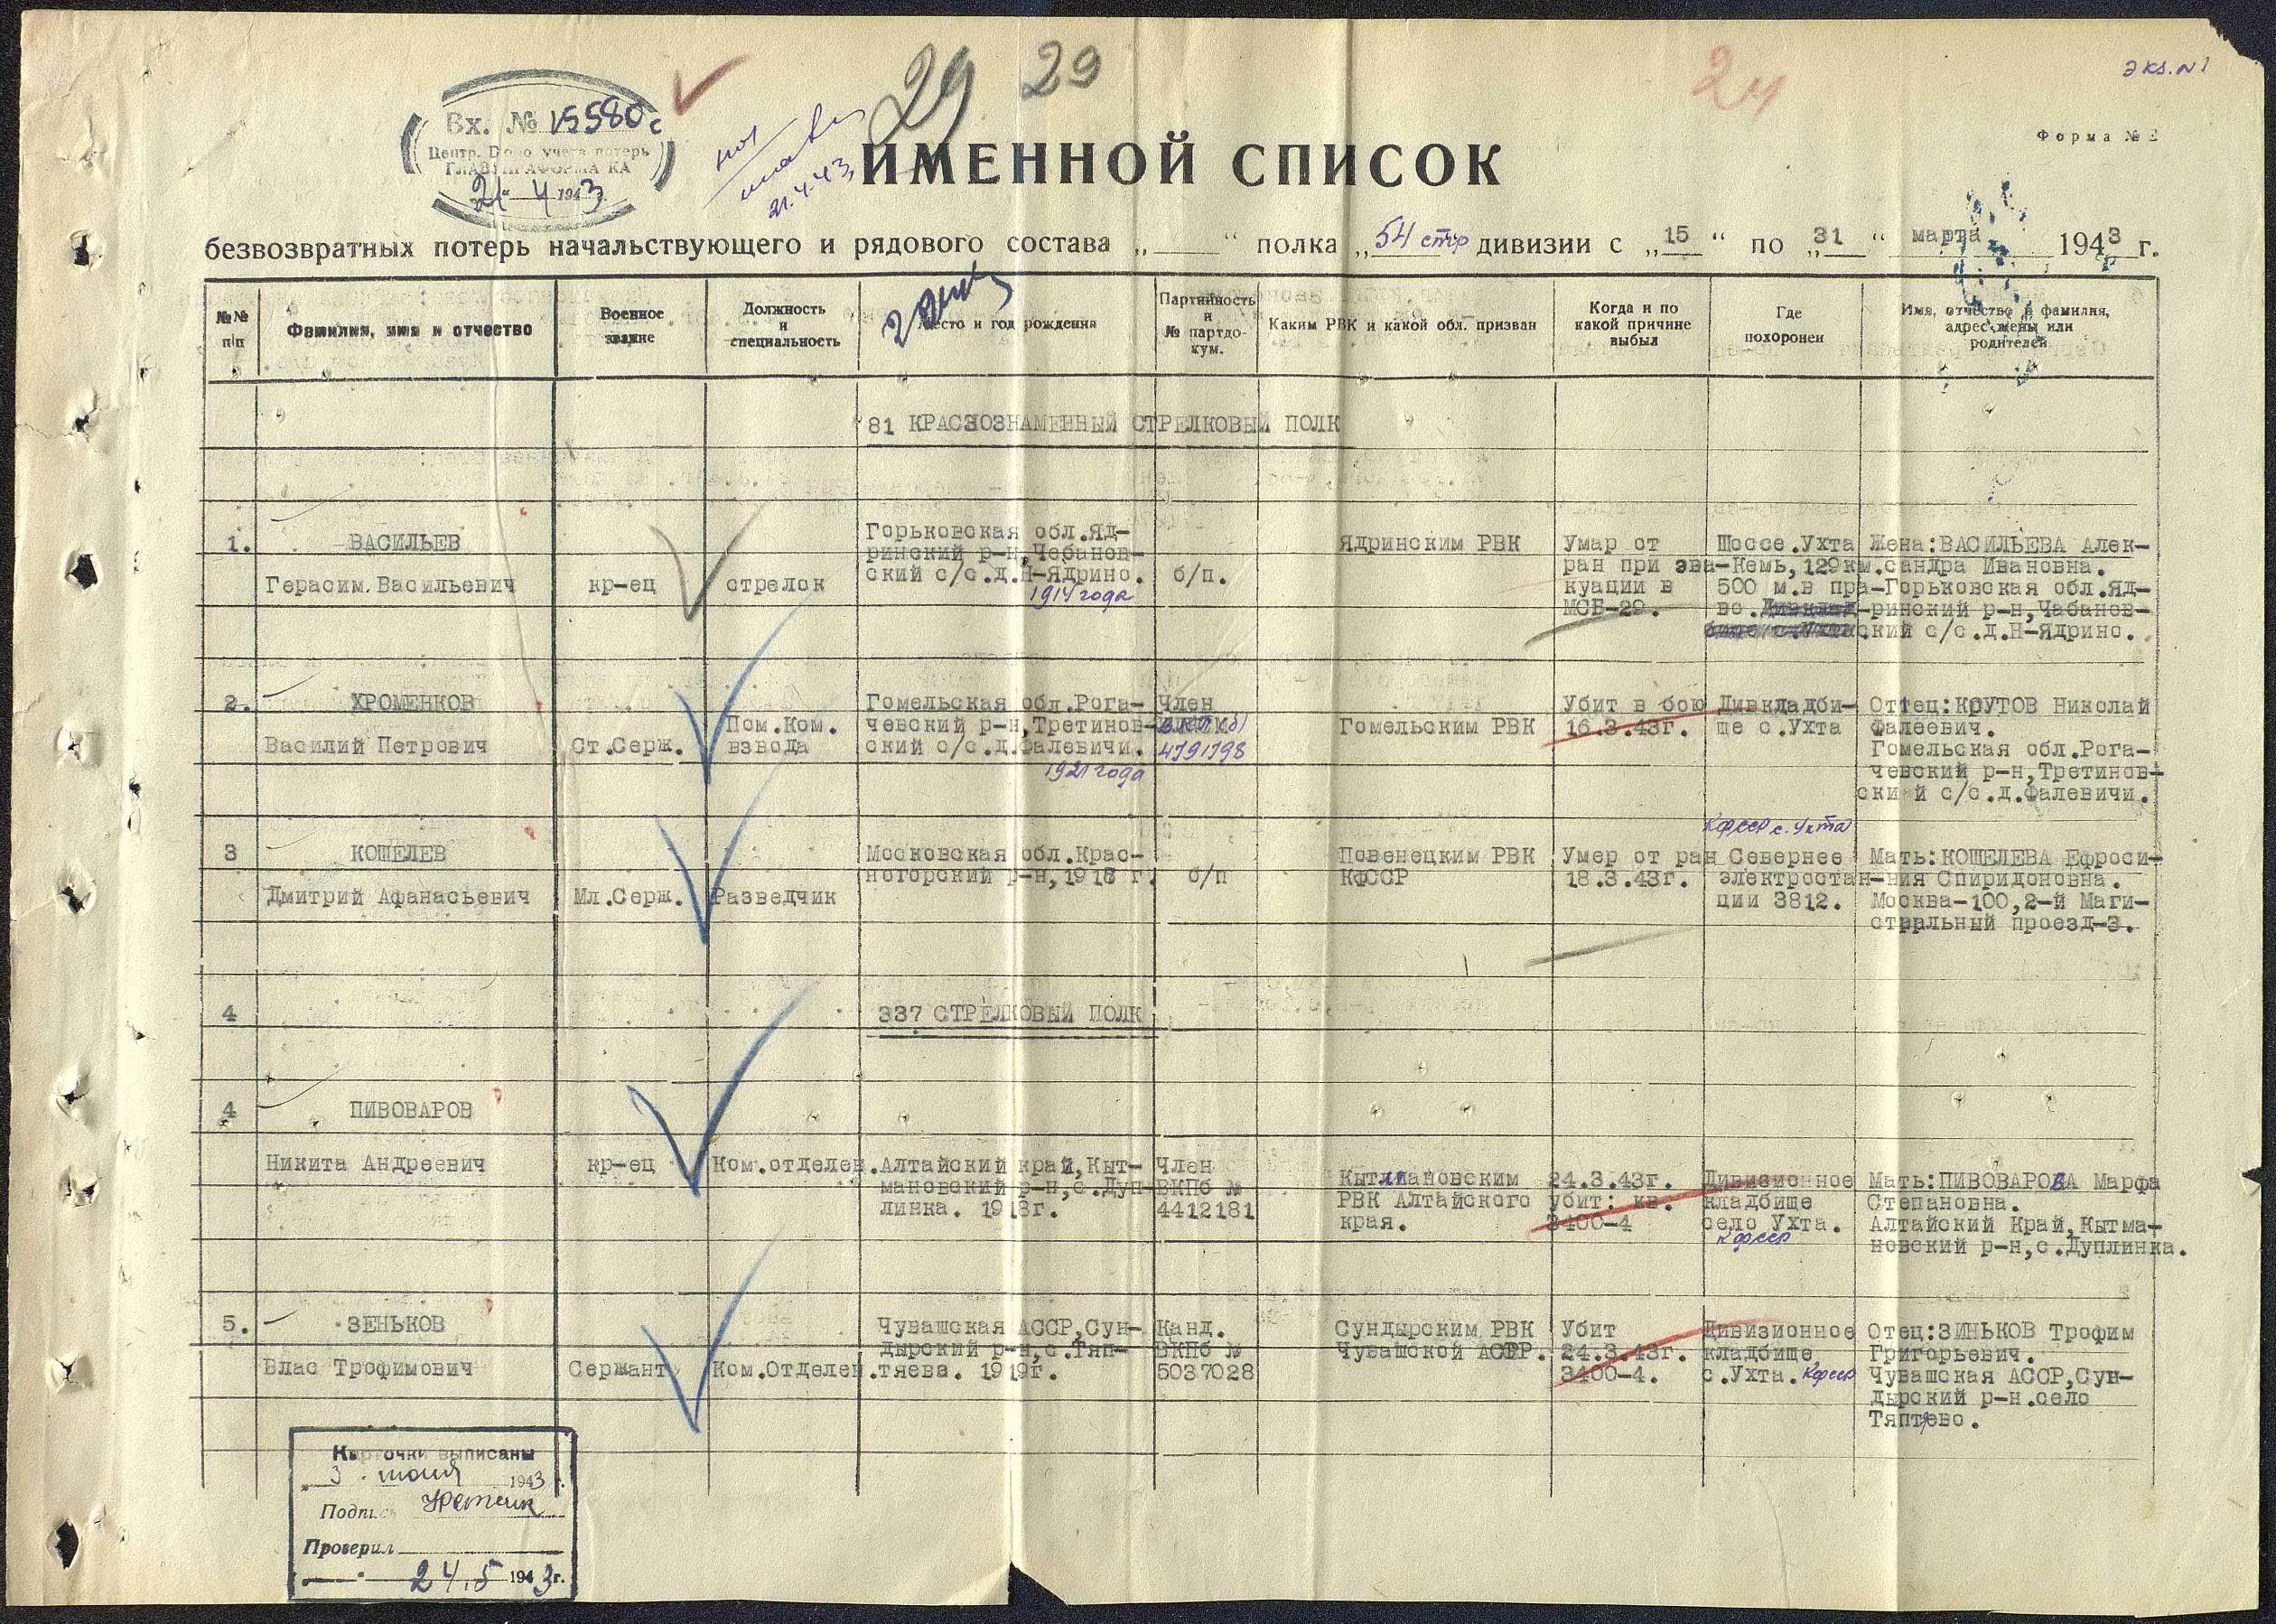 экз. №1
29 29 24
Вх. № 15580с
Центр. Бюро учета потерь
ГЛАВУПРАФОРМА КА
21 4 1943
21.4.43
Форма № 2
ИМЕННОЙ СПИСОК
безвозвратных потерь начальствующего и рядового состава „ “ полка „54 стр дивизии с „15“ по „31“ марта 1943 г.
№№ п/п
Фамилия, имя и отчество
Военное звание
Должность и специальность
Место и год рождения
Партийность и № партдокум.
Каким РВК и какой обл. призван
Когда и по какой причине выбыл
Где похоронен
Имя, отчество и фамилия, адрес жены или родителей
81 КРАСНОЗНАМЕННЫЙ СТРЕЛКОВЫЙ ПОЛК
1.
ВАСИЛЬЕВ
Герасим.Васильевич
кр-ец
стрелок
Горьковская обл.Яд-
ринский р-н,Чебанов-
ский с/с.д.Н-Ядрино.
1914 года
б/п.
Ядринским РВК
Умар от
ран при эва-
куации в
МСБ-29.
Шоссе.Ухта
-Кемь,129км.
500 м.в пра-
во.
Жена:ВАСИЛЬЕВА Алек-
сандра Ивановна.
Горьковская обл.Яд-
ринский р-н,Чабанов-
ский с/с.д.Н-Ядрино.
2.
ХРОМЕНКОВ
Василий Петрович
Ст.Серж.
Пом.Ком.
взвода
Гомельская обл.Рога-
чевский р-н,Третинов-
ский с/с.д.Фалевичи.
1921 года
Член
ВКП(б)
4791798
Гомельским РВК
Убит в бою
16.3.43г.
Дивкладби-
ще с.Ухта
Оттец:КРУТОВ Николай
Фалеевич.
Гомельская обл.Рога-
чевский р-н,Третинов-
ский с/с.д.Фалевичи.
3
КОШЕЛЕВ
Дмитрий Афанасьевич
Мл.Серж.
Разведчик
Московская обл.Крас-
ногорский р-н,1918 г.
б/п
Повенецким РВК
КФССР
Умер от ран
18.3.43г.
КФССР с. Ухта
Севернее
электростан-
ции 3812.
Мать:КОШЕЛЕВА Ефроси-
ния Спиридоновна.
Москва-100,2-й Маги-
стральный проезд-3.
4
337 СТРЕЛКОВЫЙ ПОЛК
4
ПИВОВАРОВ
Никита Андреевич
кр-ец
Ком.отделен.
Алтайский край,Кыт-
мановский р-н,с.Дуп-
линка. 1918г.
Член
ВКПб №
4412181
Кытмановским
РВК Алтайского
края.
24.3.43г.
убит: кв.
3400-4
Дивизионное
кладбище
село Ухта.
КФССР
Мать:ПИВОВАРОВА Марфа
Степановна.
Алтайский Край,Кытма-
новский р-н,с.Дуплинка.
5.
ЗЕНЬКОВ
Влас Трофимович
Сержант
Ком.Отделен.
Чувашская АССР,Сун-
дырский р-н,с.Тяп-
тяева. 1919г.
Канд.
ВКПб №
5037028
Сундырским РВК
Чувашской АССР.
Убит
24.3.43г.
3400-4.
Дивизионное
кладбище
с.Ухта. КФССР
Отец:ЗИНЬКОВ Трофим
Григорьевич.
Чувашская АССР,Сун-
дырский р-н.село
Тяптяево.
Карточки выписаны
3 июня 1943 г.
Подпись
Проверил
24.5 1943г.